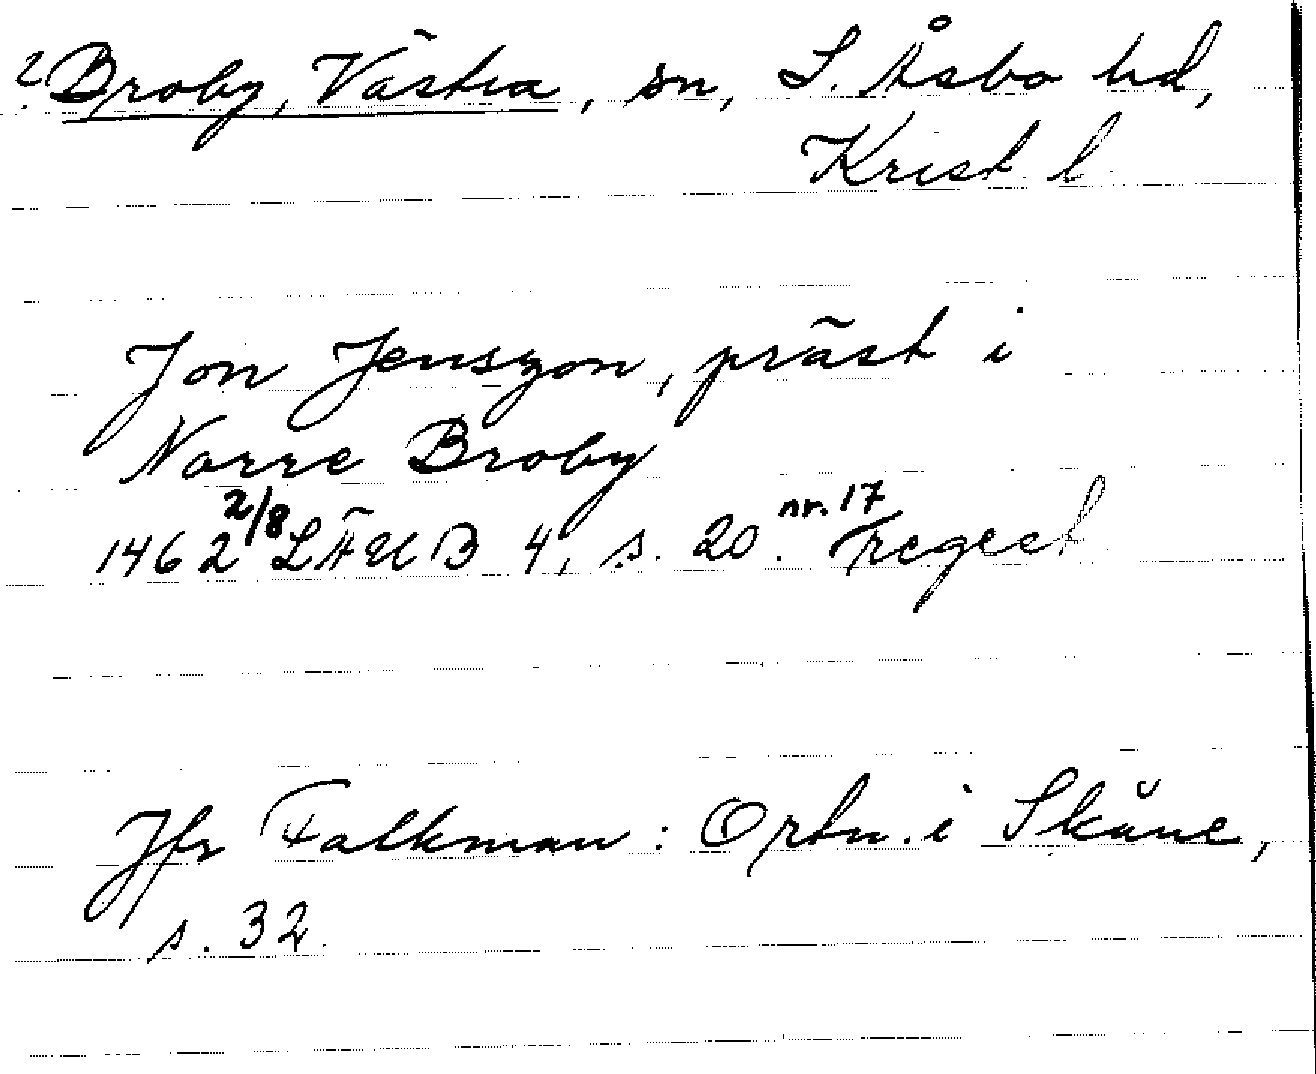 ? Broby, Västra, sn, S. Åsbo hd,
Krist l
Jon Jenszon, präst i
Norre Broby
1462 2/8 LÄUB 4, s. 20. nr. 17 Regest
Jfr Falkman: Ortn. i Skåne,
s. 32.